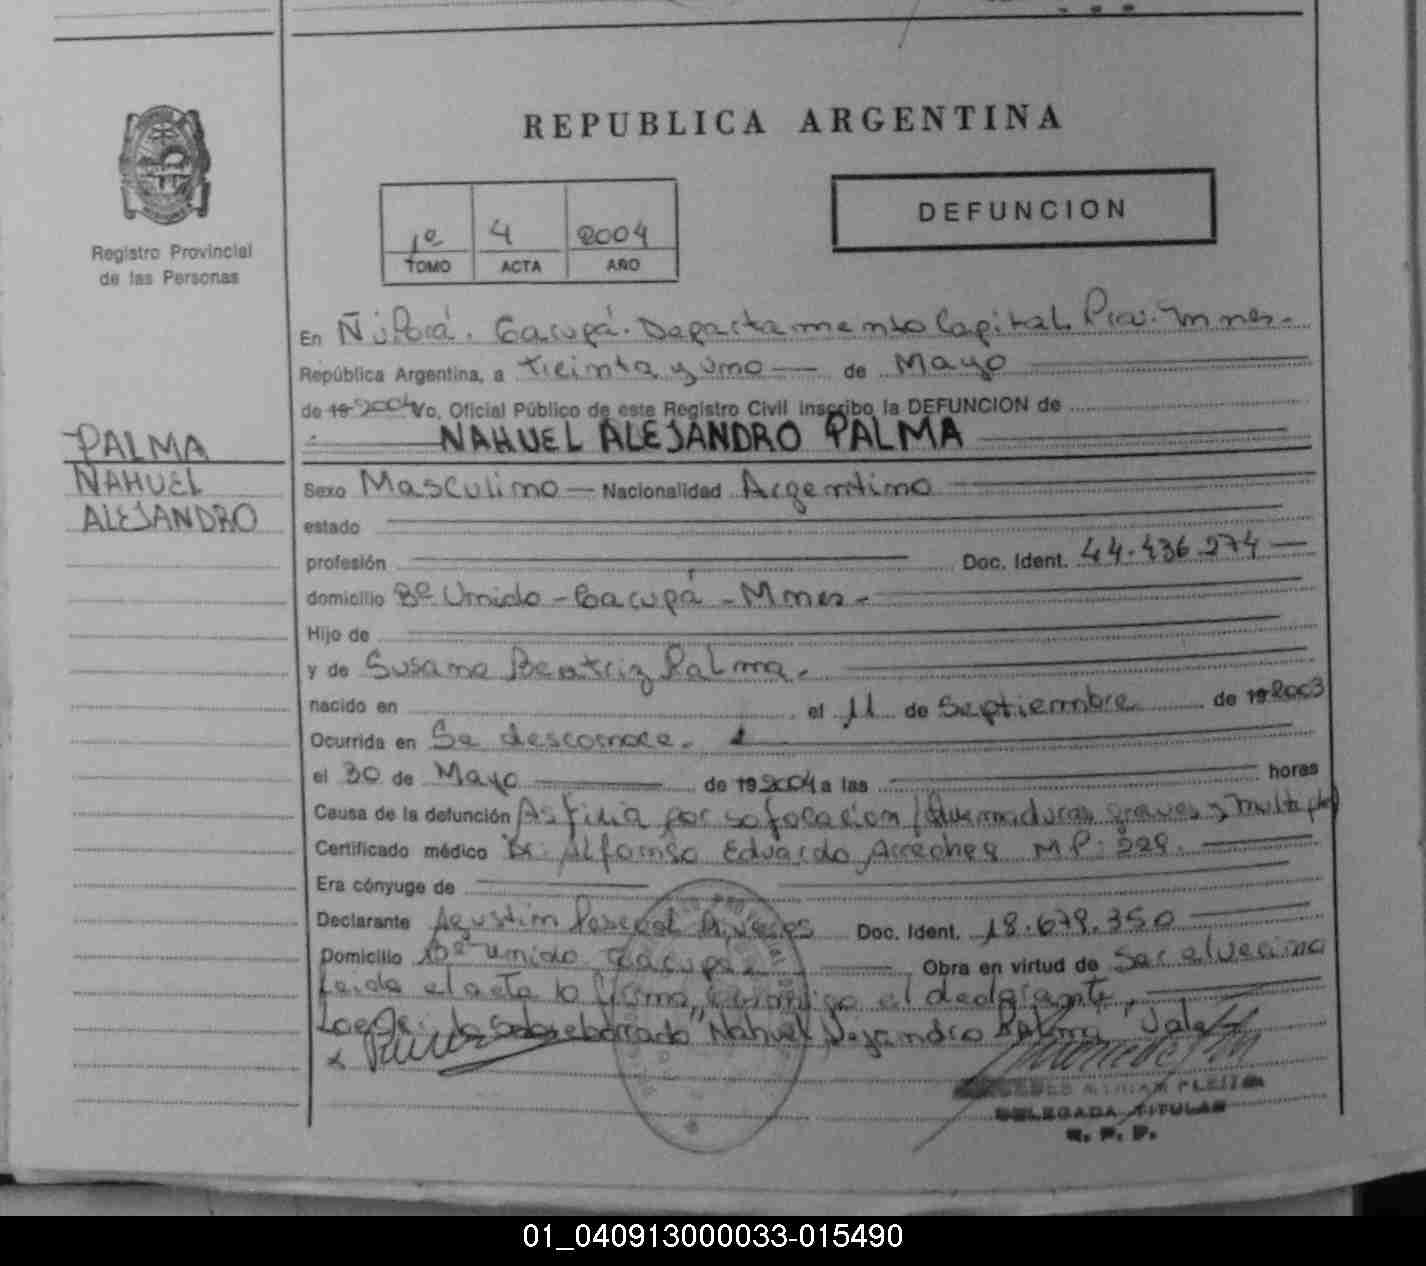 REPUBLICA ARGENTINA
DEFUNCION
1º 4 2004
TOMO ACTA AÑO
Registro Provincial
de las Personas
En Ñu Porá. Garupá. Departamento Capital. Prov. Mnes.
República Argentina, a treinta y uno de Mayo
de 19 2004 Yo, Oficial Público de este Registro Civil inscribo la DEFUNCION de
NAHUEL ALEJANDRO PALMA
PALMA
NAHUEL
ALEJANDRO
Sexo Masculino Nacionalidad Argentino
estado
profesión Doc. Ident. 44.436.274
domicilio Bº Unido - Garupá - Mnes -
Hijo de
y de Susana Beatriz Palma.
nacido en el 11 de Septiembre de 19 2003
Ocurrida en Se desconoce.
el 30 de Mayo de 19 2004 a las horas
Causa de la defunción Asfixia por sofocación / Quemaduras graves y multiples
Certificado médico Dr. Alfonso Eduardo M.P: 229.
Era cónyuge de
Declarante Agustin Doc. Ident. 18.679.350
Domicilio Bº Unido Garupá Obra en virtud de Ser el vecino
Leida el acta la firma conmigo el declarante.
sobreborrado "Nahuel Alejandro Palma" Vale
DELEGADA TITULAR
R. P. P.
01_040913000033-015490